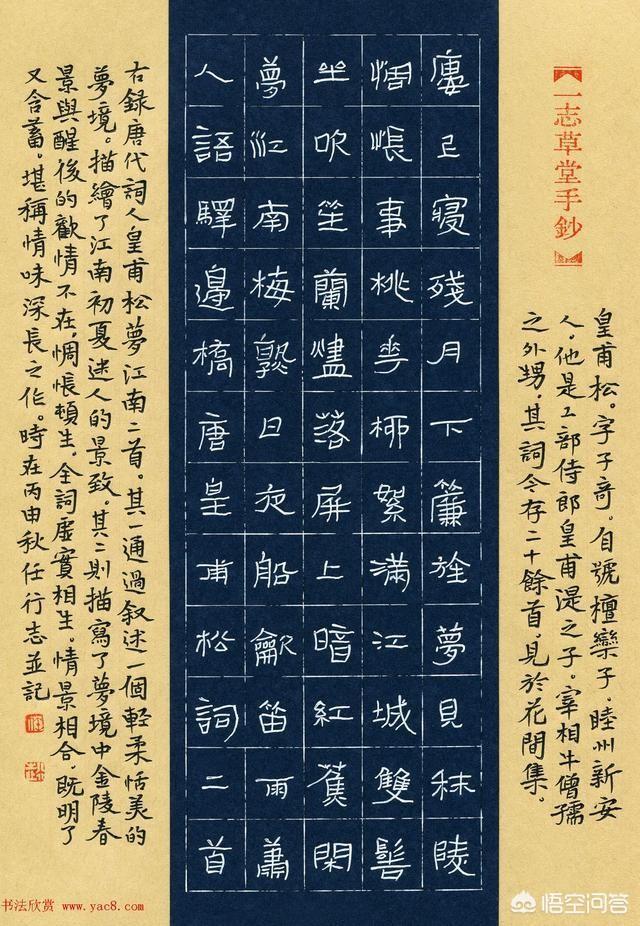 一志草堂手鈔
皇甫松。字子奇。自號檀欒子。睦州新安
人。他是工部侍郎皇甫湜之子。宰相牛僧孺
之外甥。其詞今存二十餘首，見於花間集。
廔上寢殘月下簾旌夢見秣陵
惆悵事桃華柳絮滿江城雙髻
坐吹笙蘭燼落屏上暗紅蕉閑
夢江南梅熟日夜船龡笛雨蕭
人語驛邊橋唐皇甫松詞二首
右錄唐代詞人皇甫松夢江南二首。其一通過叙述一個輕柔恬美的
夢境。描繪了江南初夏迷人的景致。其二則描寫了夢境中金陵春
景與醒後的歡情不在，惆悵頓生。全詞虛實相生。情景相合，既明了
又含蓄。堪稱情味深長之作。時在丙申秋任行志並記
书法欣赏 www.yac8.com
悟空问答